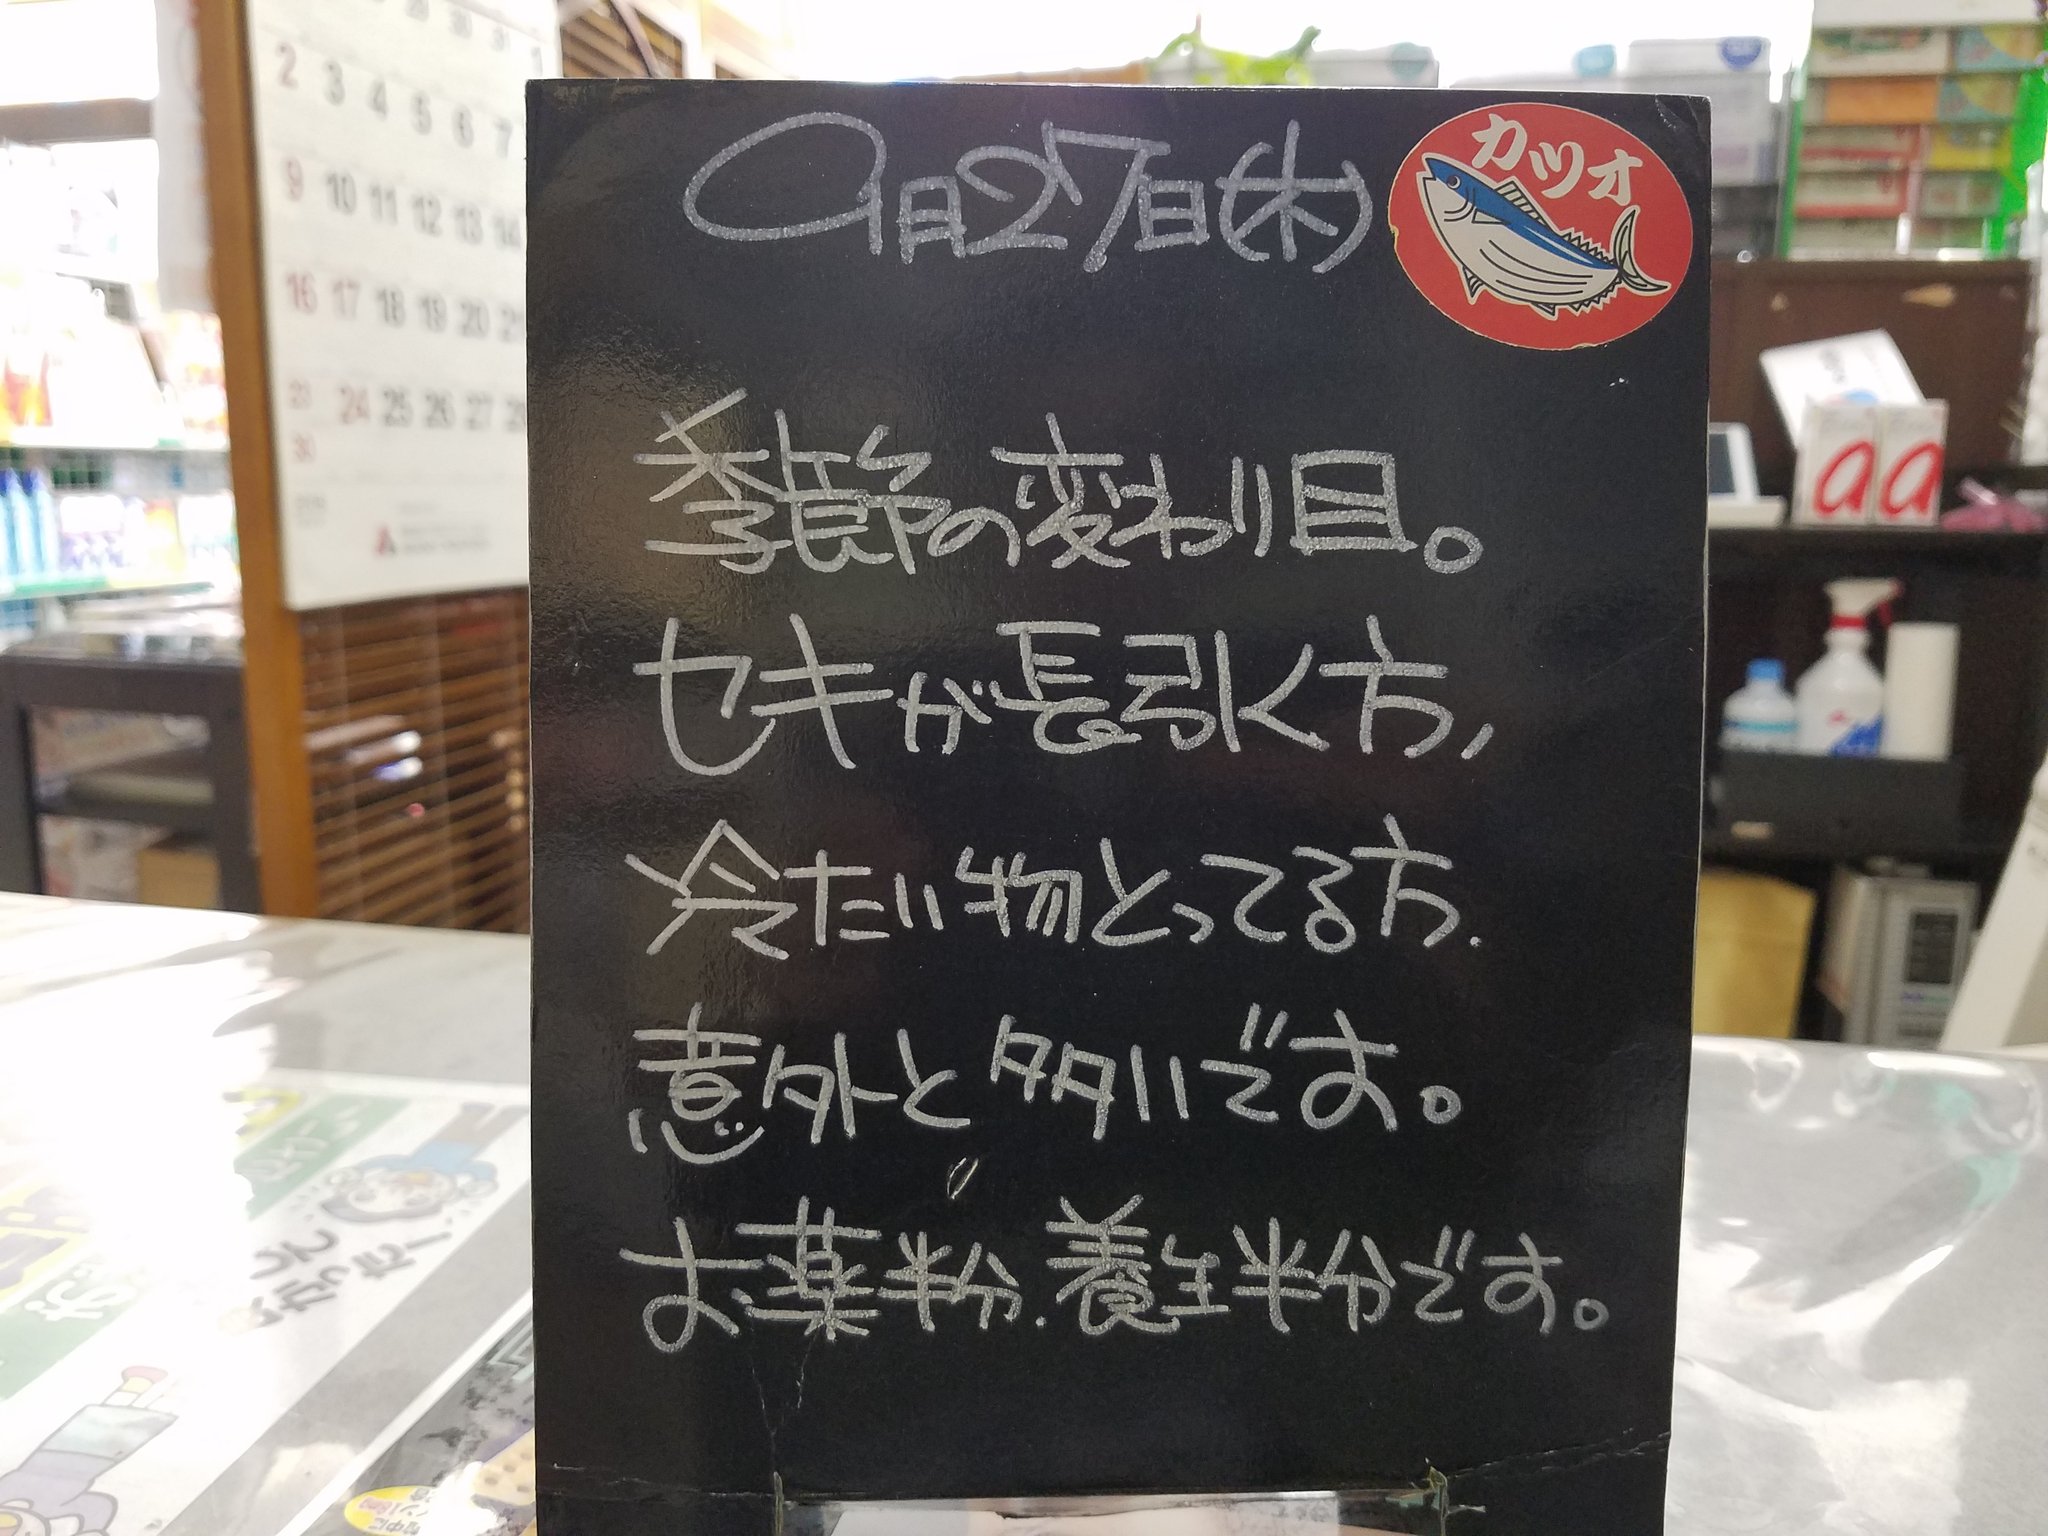 9月27日(木)
カツオ
季節の変わり目。
セキが長引く方,
冷たい物とってる方.
意外と多いです。
お薬半分.養生半分です。
2 3 4 5 6 7
9 10 11 12 13 14
16 17 18 19 20 21
23 24 25 26 27 28
30
a a